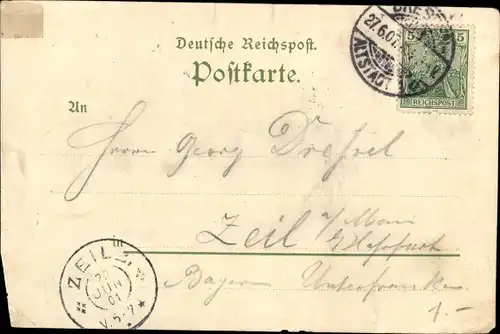 DRESDEN
27.6.01.
ALTSTADT
5 5
REICHSPOST
Deutsche Reichspost.
Postkarte.
An
Herrn Georg Dressel
in
Zeil a/Main
b/Hassfurt
Bayern Unterfranken
1.-
ZEIL
JUN
01